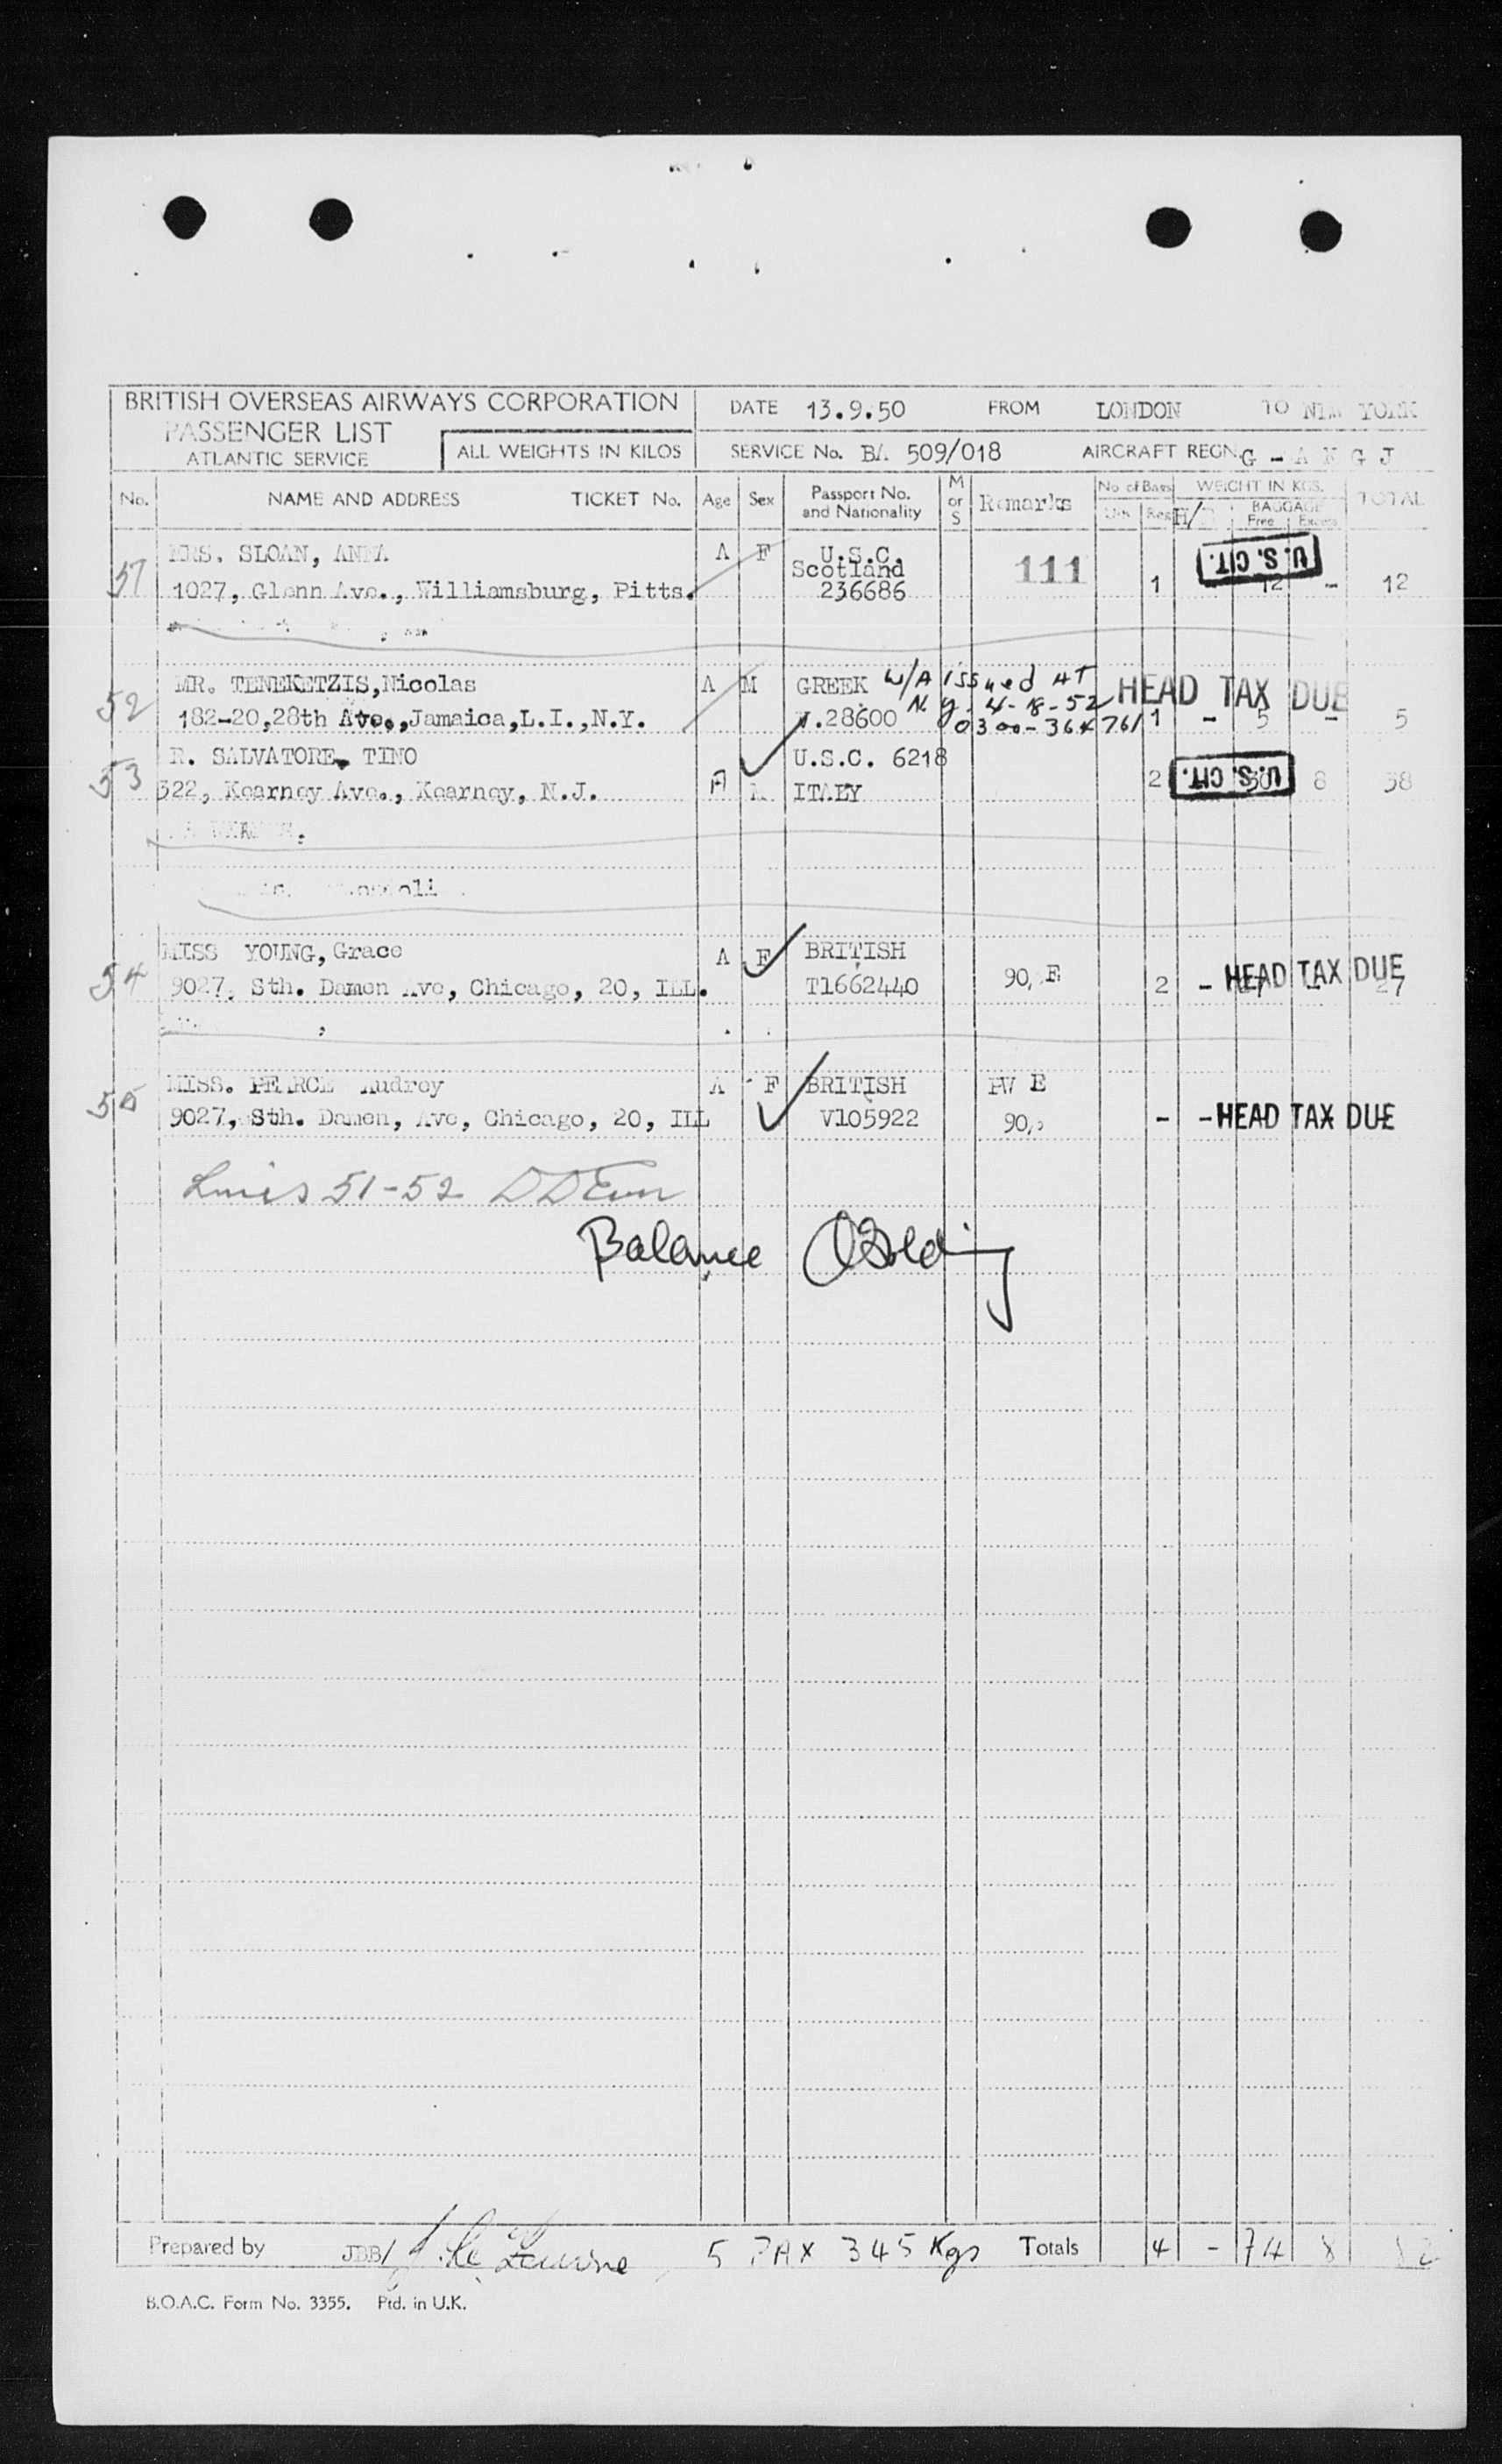 BRITISH OVERSEAS AIRWAYS CORPORATION
PASSENGER LIST
ATLANTIC SERVICE
ALL WEIGHTS IN KILOS
DATE 13.9.50 FROM LONDON TO NEW YORK
SERVICE No. BA 509/018 AIRCRAFT REGN. G - A K G J
No. NAME AND ADDRESS TICKET No. Age Sex Passport No. and Nationality M or S Remarks No of Bags Reg H/ WEIGHT IN KGS. BAGGAGE Free Excess TOTAL
MRS. SLOAN, ANNA A F U.S.C. U.S. CIT.
51 Scotland 111
1027, Glenn Ave., Williamsburg, Pitts. 236686 1 - 12 - 12
MR. TENEKETZIS, Nicolas A M GREEK W/A issued AT HEAD TAX DUE
52 182-20, 28th Ave., Jamaica, L.I., N.Y. V.28600 N.Y. 4-18-52 1 - 5 - 5
0300-364761
R. SALVATORE. TINO U.S.C. 6218
53 322, Kearney Ave., Kearney, N.J. A M ITALY 2 U.S. CIT. 30 8 38
MISS YOUNG, Grace A F BRITISH
54 9027, Sth. Damen Ave, Chicago, 20, ILL. T1662440 90, E 2 - 27 - 27
HEAD TAX DUE
MISS. PEARCE Audrey A F BRITISH PV E
55 9027, Sth. Damen, Ave, Chicago, 20, ILL V105922 90, - - HEAD TAX DUE
Lines 51-52
Balance
Prepared by JDB/ 5 PAX 345 Kgs Totals 4 - 74 8 82
B.O.A.C. Form No. 3355. Ptd. in U.K.